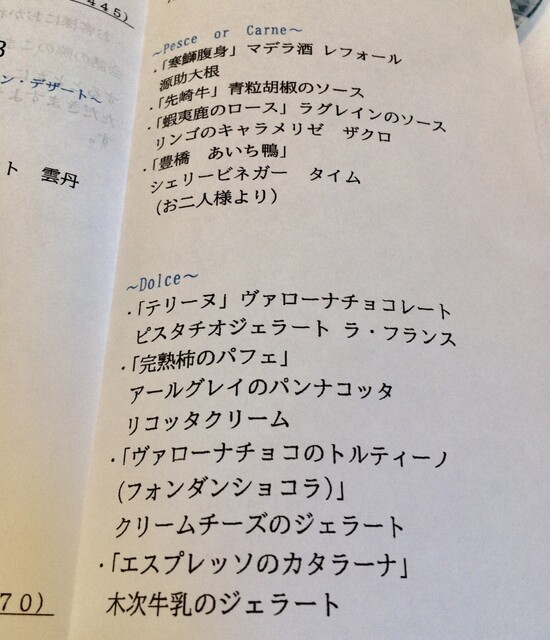 445)
3
ン・デザート～
ト 雲丹
70)
～Pesce or Carne～
・「寒鰤腹身」マデラ酒 レフォール
源助大根
・「先崎牛」青粒胡椒のソース
・「蝦夷鹿のロース」ラグレインのソース
リンゴのキャラメリゼ ザクロ
・「豊橋 あいち鴨」
シェリービネガー タイム
(お二人様より)
～Dolce～
・「テリーヌ」ヴァローナチョコレート
ピスタチオジェラート ラ・フランス
・「完熟柿のパフェ」
アールグレイのパンナコッタ
リコッタクリーム
・「ヴァローナチョコのトルティーノ
(フォンダンショコラ)」
クリームチーズのジェラート
・「エスプレッソのカタラーナ」
木次牛乳のジェラート